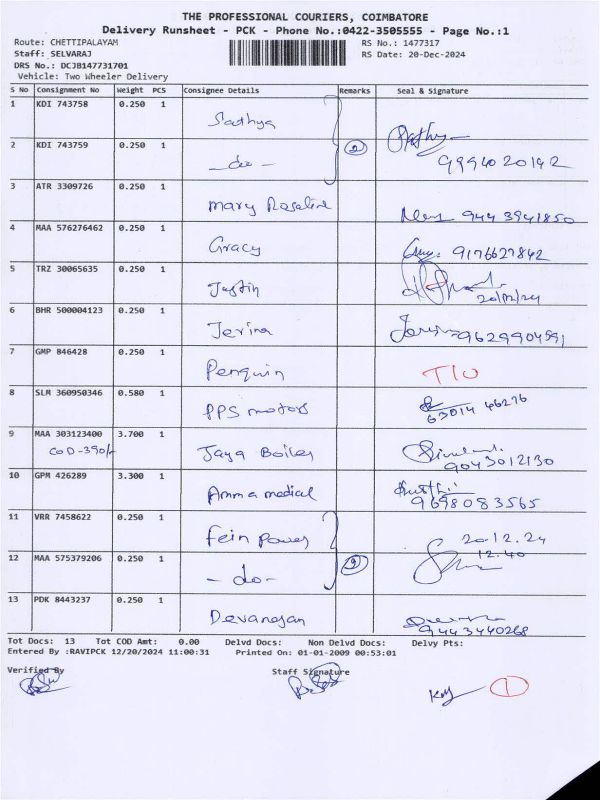 THE PROFESSIONAL COURIERS, COIMBATORE
Delivery Runsheet - PCK - Phone No.:0422-3505555 - Page No.:1
Route: CHETTIPALAYAM
Staff: SELVARAJ
DRS No.: DCJB147731701
Vehicle: Two Wheeler Delivery
RS No.: 1477317
RS Date: 20-Dec-2024
S No Consignment No Weight PCS Consignee Details Remarks Seal & Signature
1 KDI 743758 0.250 1 Sathya
2 KDI 743759 0.250 1 - do - 2 9994020142
3 ATR 3309726 0.250 1 Mary Rosaline 9443941850
4 MAA 576276462 0.250 1 Gracy 9176627842
5 TRZ 30065635 0.250 1 Justin 20/12/24
6 BHR 500004123 0.250 1 Jerina 9629904591
7 GMP 846428 0.250 1 Penguin T/O
8 SLM 360950346 0.580 1 PPS motors 63014 46276
9 MAA 303123400 3.700 1 Jaya Boiles 9043012130
COD-390/-
10 GPM 426289 3.300 1 Amma medical 9698083565
11 VRR 7458622 0.250 1 Fein Power 20.12.24
12.40
12 MAA 575379206 0.250 1 - do - 2
13 PDK 8443237 0.250 1 Devanesan 9443440268
Tot Docs: 13 Tot COD Amt: 0.00 Delvd Docs: Non Delvd Docs: Delvy Pts:
Entered By :RAVIPCK 12/20/2024 11:00:31 Printed On: 01-01-2009 00:53:01
Verified By Staff Signature
1